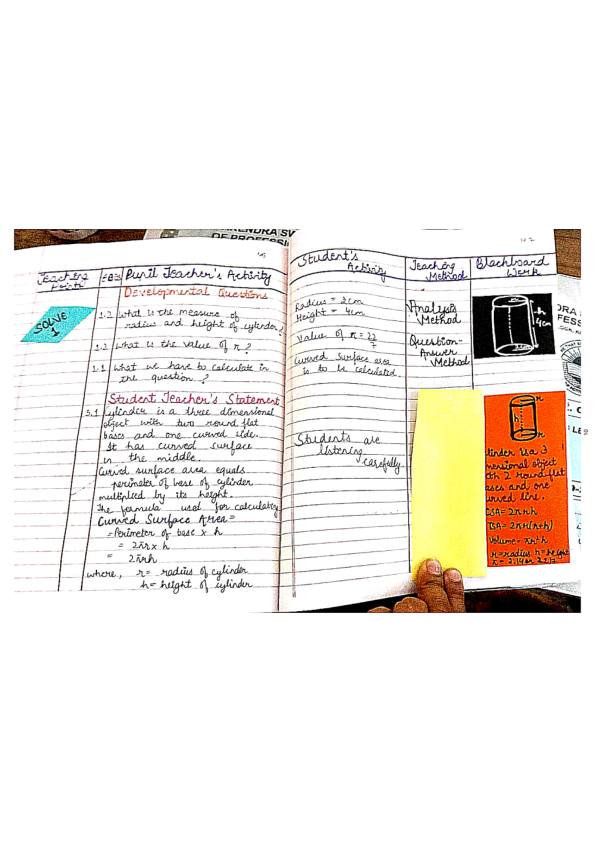 Teaching Points
Pupil Teacher's Activity
Developmental Questions
SOLVE 1
1.2 What is the measure of
radius and height of cylinder?
1.2 What is the value of π?
1.1 What we have to calculate in
the question?
Student Teacher's Statement
5.1 Cylinder is a three dimensional
object with two round flat
bases and one curved side.
It has curved surface
in the middle.
Curved surface area equals
perimeter of base of cylinder
multiplied by its height.
The formula used for calculating
Curved Surface Area =
= Perimeter of base x h
= 2πr x h
= 2πrh
where, r = radius of cylinder
h = height of cylinder
Student's Activity
Radius = 2cm
Height = 4cm
Value of π = 22/7
Curved Surface area
is to be calculated
Students are
listening
carefully.
Teaching Method
Analysis
Method
Question-
Answer
Method
Blackboard Work
h
4cm
r
h
r
linder is a 3
mensional object
th 2 round flat
ases and one
urved line.
CSA = 2πrh
TSA = 2πr(r+h)
Volume = πr²h
r = radius h = height
π = 3.14 or 22/7